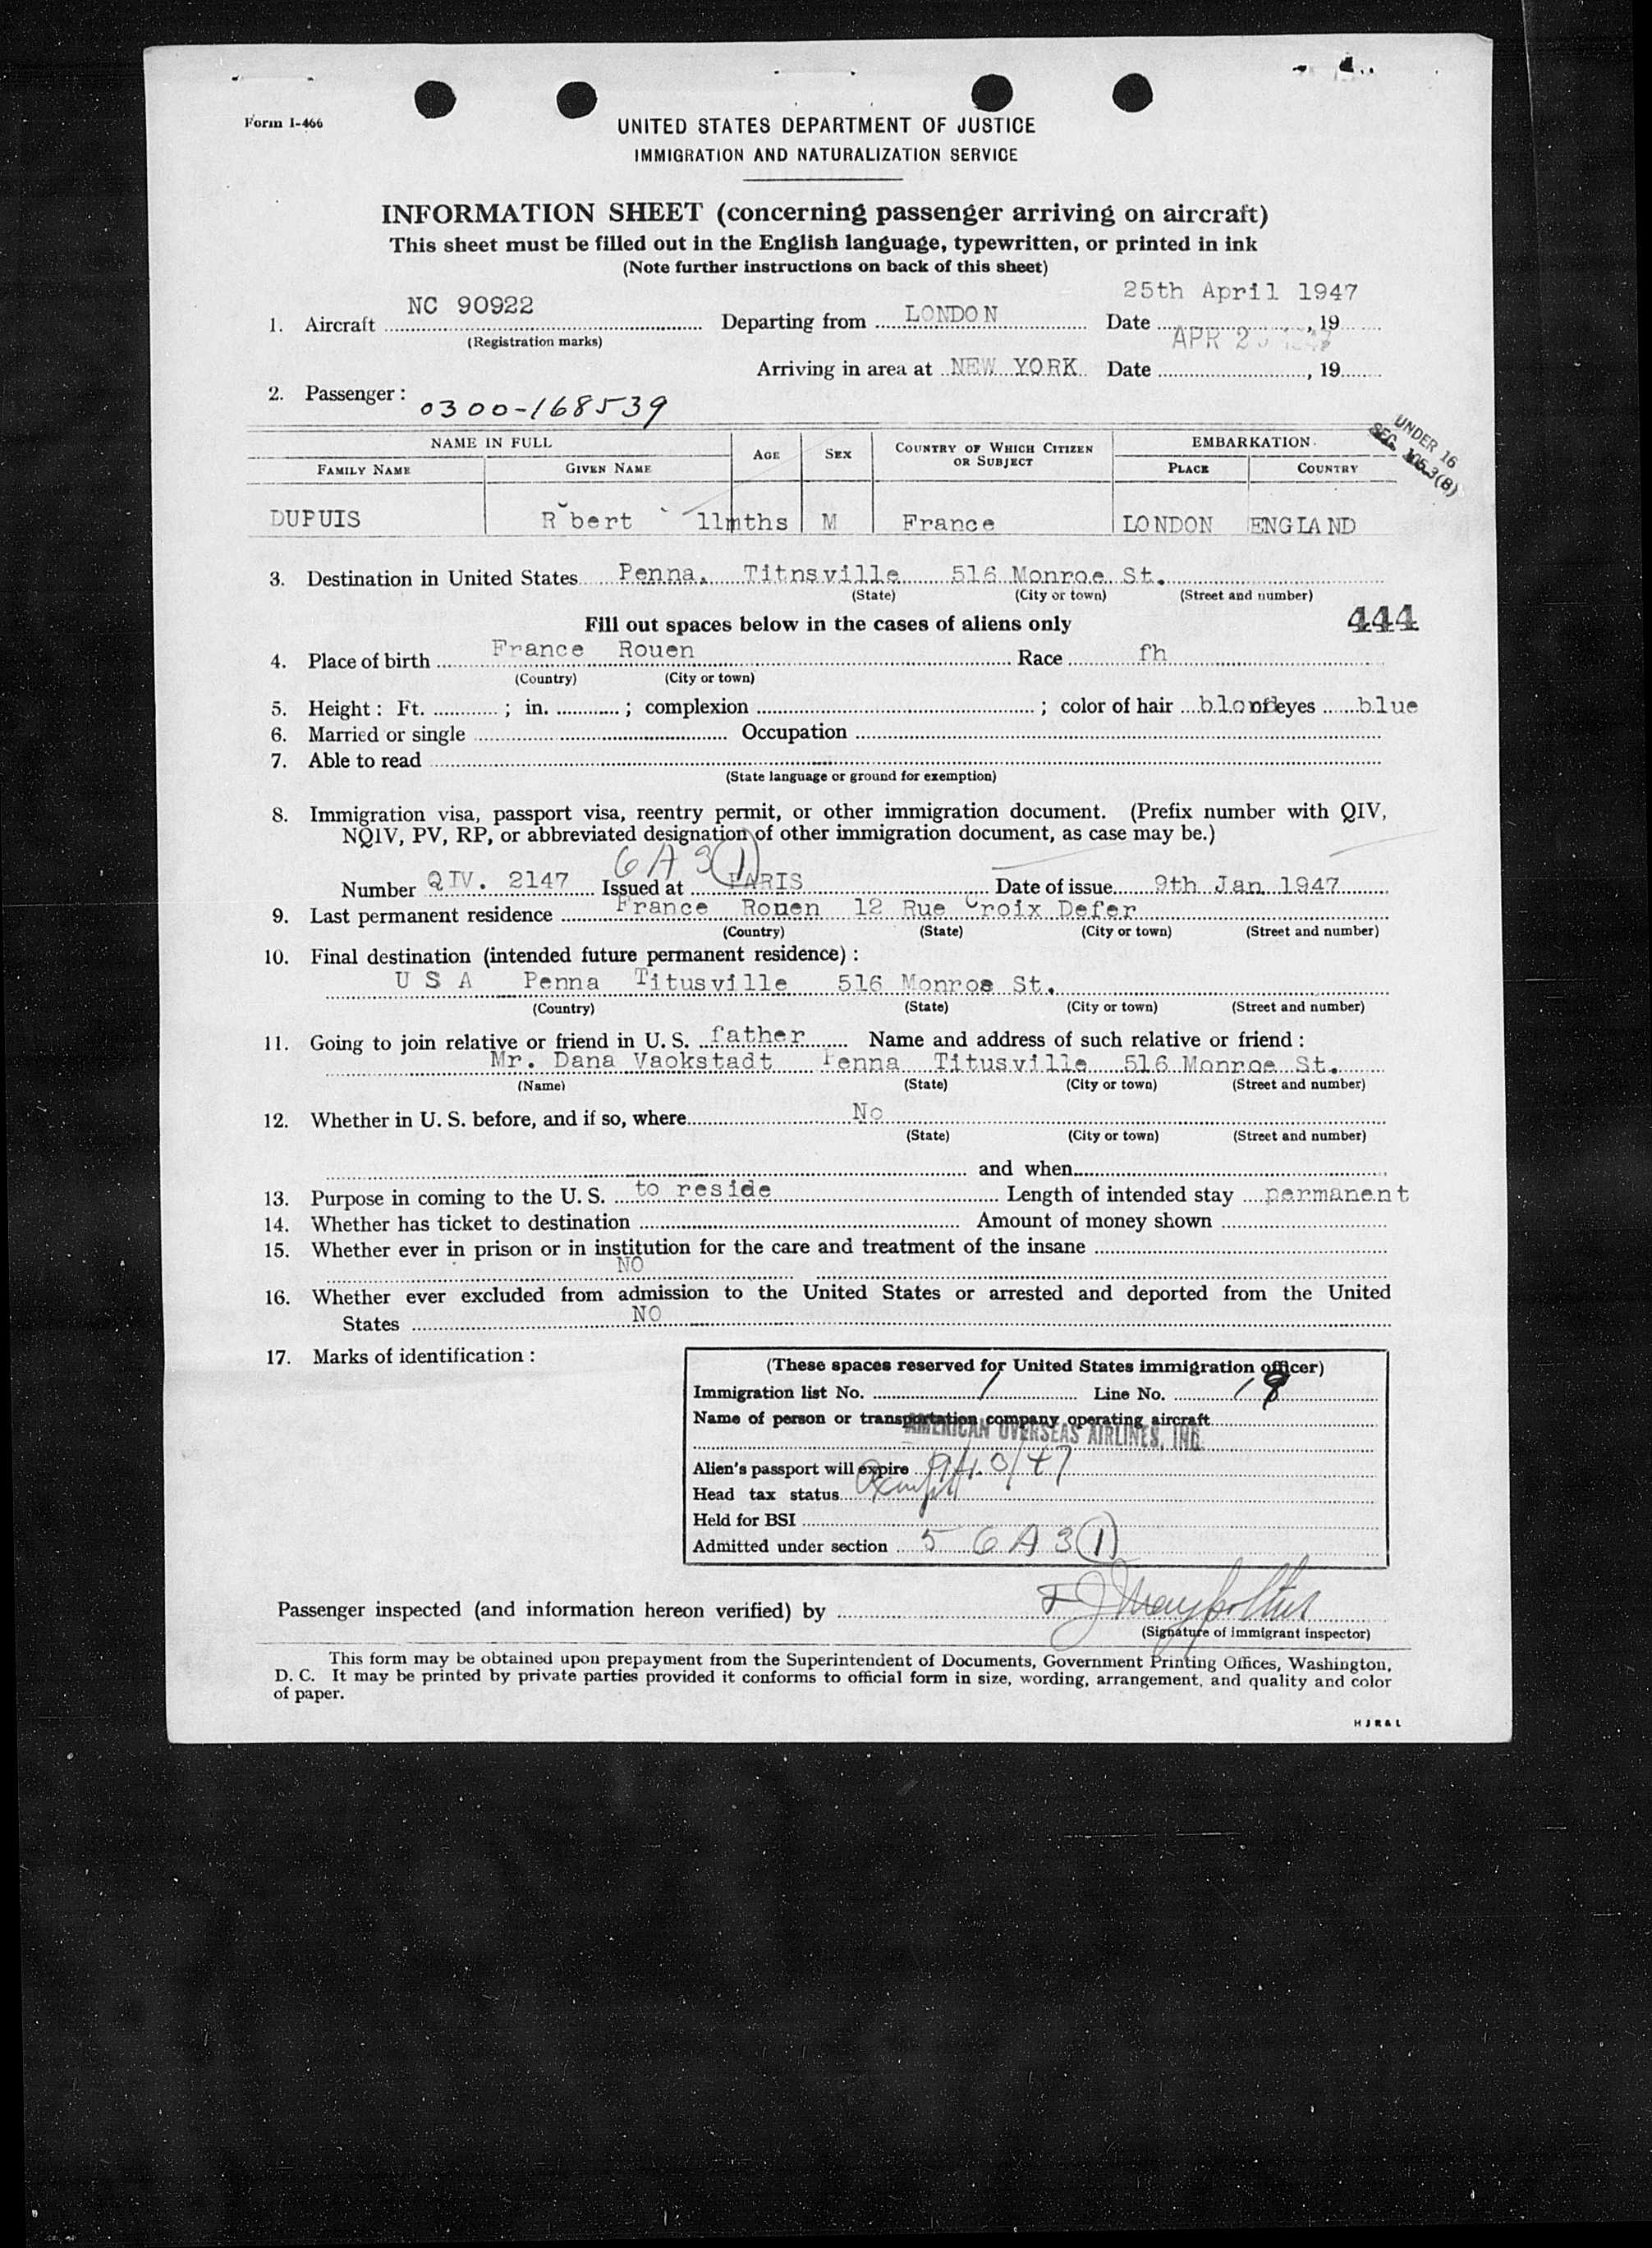 Form I-466
UNITED STATES DEPARTMENT OF JUSTICE
IMMIGRATION AND NATURALIZATION SERVICE
INFORMATION SHEET (concerning passenger arriving on aircraft)
This sheet must be filled out in the English language, typewritten, or printed in ink
(Note further instructions on back of this sheet)
25th April 1947
1. Aircraft NC 90922 Departing from LONDON Date , 19
(Registration marks)
APR 2
Arriving in area at NEW YORK Date , 19
2. Passenger: 0300-168539
UNDER 16
SEC. 105.3(B)
NAME IN FULL AGE SEX COUNTRY OF WHICH CITIZEN OR SUBJECT EMBARKATION
FAMILY NAME GIVEN NAME PLACE COUNTRY
DUPUIS R bert 11mths M France LONDON ENGLAND
3. Destination in United States Penna. Titnsville 516 Monroe St.
(State) (City or town) (Street and number)
Fill out spaces below in the cases of aliens only 444
4. Place of birth France Rouen Race fh
(Country) (City or town)
5. Height: Ft. ; in. ; complexion ; color of hair blond of eyes blue
6. Married or single Occupation
7. Able to read
(State language or ground for exemption)
8. Immigration visa, passport visa, reentry permit, or other immigration document. (Prefix number with QIV,
NQIV, PV, RP, or abbreviated designation of other immigration document, as case may be.)
6 A 3 (1)
Number QIV. 2147 Issued at PARIS Date of issue 9th Jan 1947
9. Last permanent residence France Rouen 12 Rue Croix Defer
(Country) (State) (City or town) (Street and number)
10. Final destination (intended future permanent residence):
U S A Penna Titusville 516 Monroe St.
(Country) (State) (City or town) (Street and number)
11. Going to join relative or friend in U. S. father Name and address of such relative or friend:
Mr. Dana Vaokstadt Penna Titusville 516 Monroe St.
(Name) (State) (City or town) (Street and number)
12. Whether in U. S. before, and if so, where No
(State) (City or town) (Street and number)
and when
13. Purpose in coming to the U. S. to reside Length of intended stay permanent
14. Whether has ticket to destination Amount of money shown
15. Whether ever in prison or in institution for the care and treatment of the insane
NO
16. Whether ever excluded from admission to the United States or arrested and deported from the United
States NO
17. Marks of identification:
(These spaces reserved for United States immigration officer)
Immigration list No. 1 Line No. 18
Name of person or transportation company operating aircraft
AMERICAN OVERSEAS AIRLINES, INC.
Alien's passport will expire
Head tax status Exempt
Held for BSI
Admitted under section 5 6 A 3 (1)
Passenger inspected (and information hereon verified) by
(Signature of immigrant inspector)
This form may be obtained upon prepayment from the Superintendent of Documents, Government Printing Offices, Washington,
D. C. It may be printed by private parties provided it conforms to official form in size, wording, arrangement, and quality and color
of paper.
HJR&L